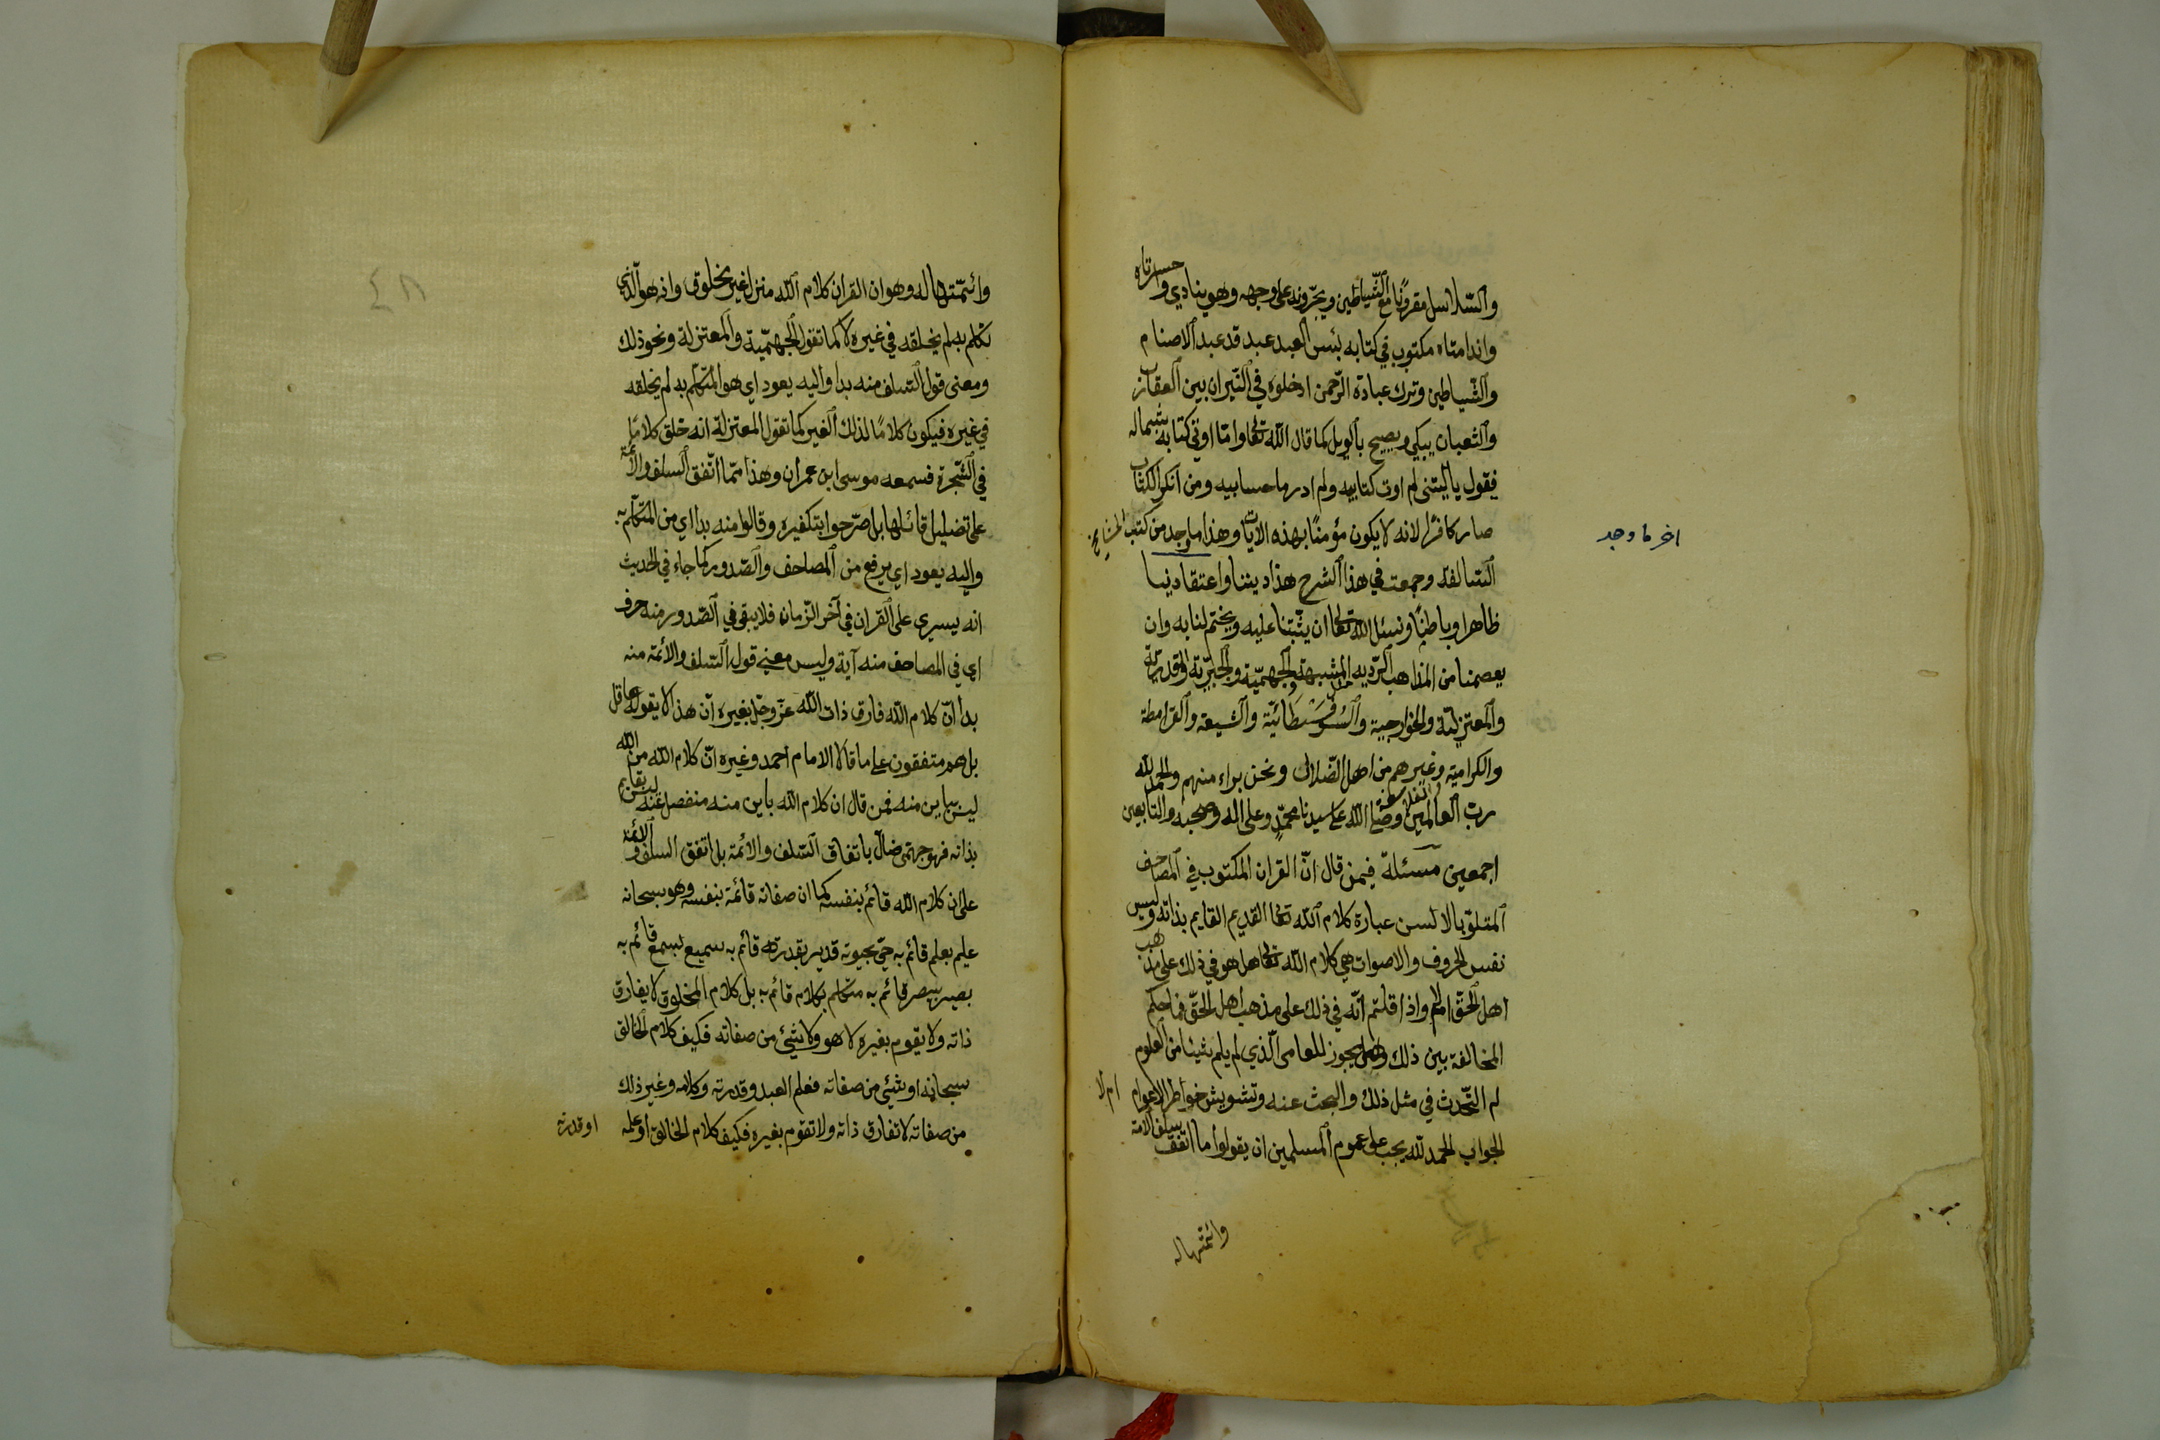 والسّلاسل مقرونًا مع الشّياطين ويجرّونه على وجهه وهو ينادي واحسرتاه
واندامتاه مكتوب في كتابه بئس العبد عبد قد عبد الاصنام
والشّياطين وترك عبادة الرّحمن ادخلوه في النّيران بين العقارب
والثعبان يبكي ويصيح بالويل كما قال اللّه تعالى وامّا اوتي كتابه بشماله
فيقول ياليتنى لم اوت كتابيه ولم ادر ماحسابيه ومن انكر الكتاب
صار كافرًا لانه لا يكون مؤمنًا بهذه الآيات وهذا ما وجد من كتب
السّالفة وجمعت في هذا الشرح هذا ديننا واعتقادنيا
ظاهرا وباطنًا ونسئل اللّه تعالى ان يثبّتنا عليه ويختم لنا به وان
يعصمنا من المذاهب الرّديه المشبهة والجهميّة والجبريّة والقدريّة
والمعتزليّة والخوارجية والسّوفسطائيّة والشيعة والقرامطة
والكرامية وغيرهم من اهل الضّلال ونحن براء منهم والحمد للّه
ربّ العالمين وصلى اللّه على سيدنا محمّد وعلى اله وصحبه والتابعين
اجمعين مسئلة فيمن قال انّ القران المكتوب في المصاحف
المتلوّ بالالسن عبارة كلام اللّه تعالى القديم القايم بذاته وليس
نفس الحروف والاصوات هي كلام اللّه تعالى هل هو في ذلك على مذهب
اهل الحقّ ام لا واذا قلتم انّه في ذلك على مذهب اهل الحقّ فما حكم
المخالفة بين ذلك وهل يجوز للعامى الّذي لم يلم بشيئا من العلوم
لم التّحدث في مثل ذلك والبحث عنه وتشويش خواطر الاعوام ام لا
الجواب الحمد للّه يجب على عموم المسلمين ان يقولوا ما اتفق سلف الامة
وائمتها له
اخر ما وجد
وائمّتها له وهو ان القران كلام اللّه منزل غير مخلوق وانه هو الّذي
تكلم به لم يخلقه في غيره لا كما تقول الجهميّة والمعتزلة ونحو ذلك
ومعنى قول السّلف منه بدا واليه يعود اي هو المتكلّم به لم يخلقه
في غيره فيكون كلامًا لذلك الغير كما تقول المعتزلة انه خلق كلامًا
في الشّجرة فسمعه موسى ابن عمران وهذا ممّا اتّفق السلف والائمة
على تضليل قائلها بل صرّحوا بتكفيره وقالوا منه بدا اي من المتكلّم به
واليه يعود اي يرفع من المصاحف والصّدور كما جاء في الحديث
انه يسري على القران في آخر الزّمان فلا يبقى في الصّدور منه حرف
اي في المصاحف منه آية وليس معنى قول السّلف والائمة منه
بدا انّ كلام اللّه فارق ذات اللّه عزّ وجلّ بغيره ان هذا لا يقوله عاقل
بل هم متفقون على ما قالا الامام احمد وغيره انّ كلام اللّه من اللّه
ليس بباين منه فمن قال ان كلام اللّه باين منه منفصل عنه ليس بقايم
بذاته فهو جهمى ضالّ باتفاق السّلف والائمة بل اتفق السلف والائمة
على ان كلام اللّه قائم بنفسه كما ان صفاته قائمة بنفسه وهو سبحانه
عليم بعلم قائم به حيّ بحيوته قدير بقدرته قائم به سميع بسمع قائم به
بصير ببصر قائم به متكلم بكلام قائم به بل كلام المخلوق لا يفارق
ذاته ولا يقوم بغيره لا هو ولا شئ من صفاته فكيف كلام الخالق
سبحانه او شئ من صفاته فعلم العبد وقدرته وكلامه وغير ذلك
من صفاته لا تفارق ذاته ولا تقوم بغيره فكيف كلام الخالق او علمه او قدرته
٤٨